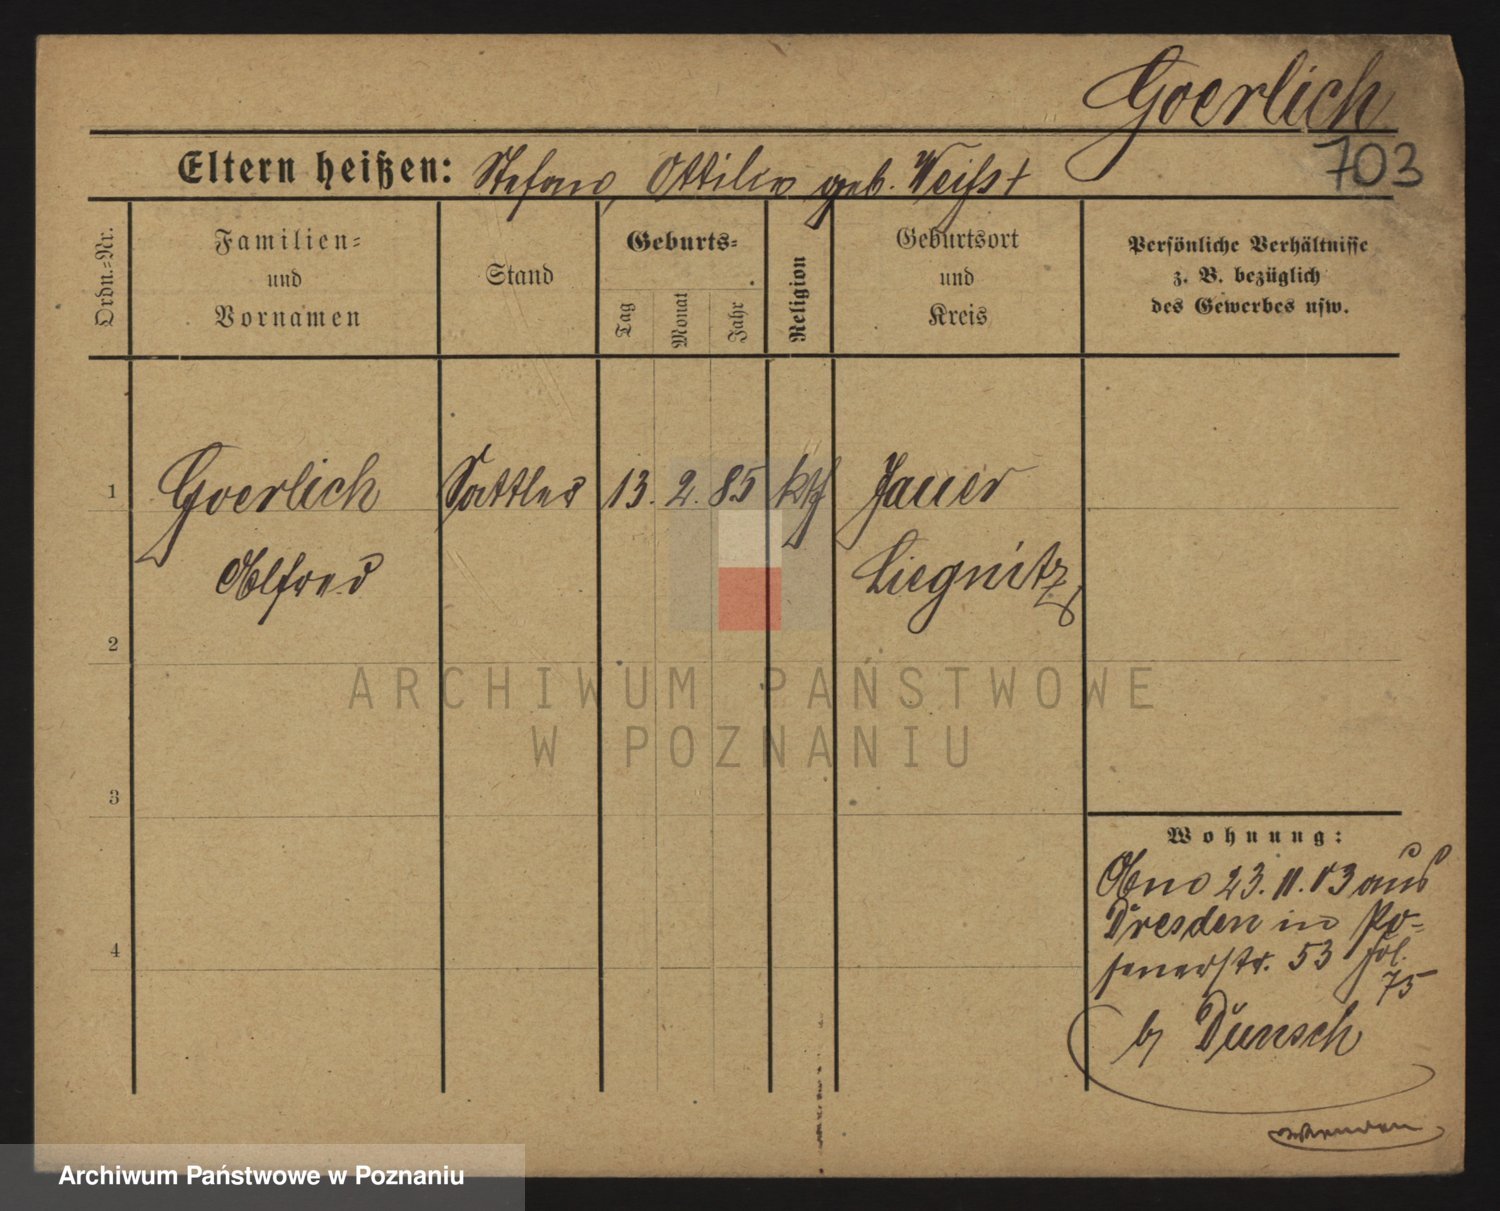 Goerlich
703
Eltern heißen: Stefan, Ottilie geb. Weiß †
Ordn.-Nr.
Familien-
und
Vornamen
Stand
Geburts-
Tag
Monat
Jahr
Religion
Geburtsort
und
Kreis
Persönliche Verhältnisse
z. B. bezüglich
des Gewerbes usw.
1 Goerlich Sattler 13. 2. 85 kth Jauer
Alfred Liegnitz
2
ARCHIWUM PAŃSTWOWE
W POZNANIU
3
4
Wohnung:
23. 11. 03 aus
Dresden in Po-
senerstr. 53 Jol.
75
b/ Dunsch
Wenden
Archiwum Państwowe w Poznaniu